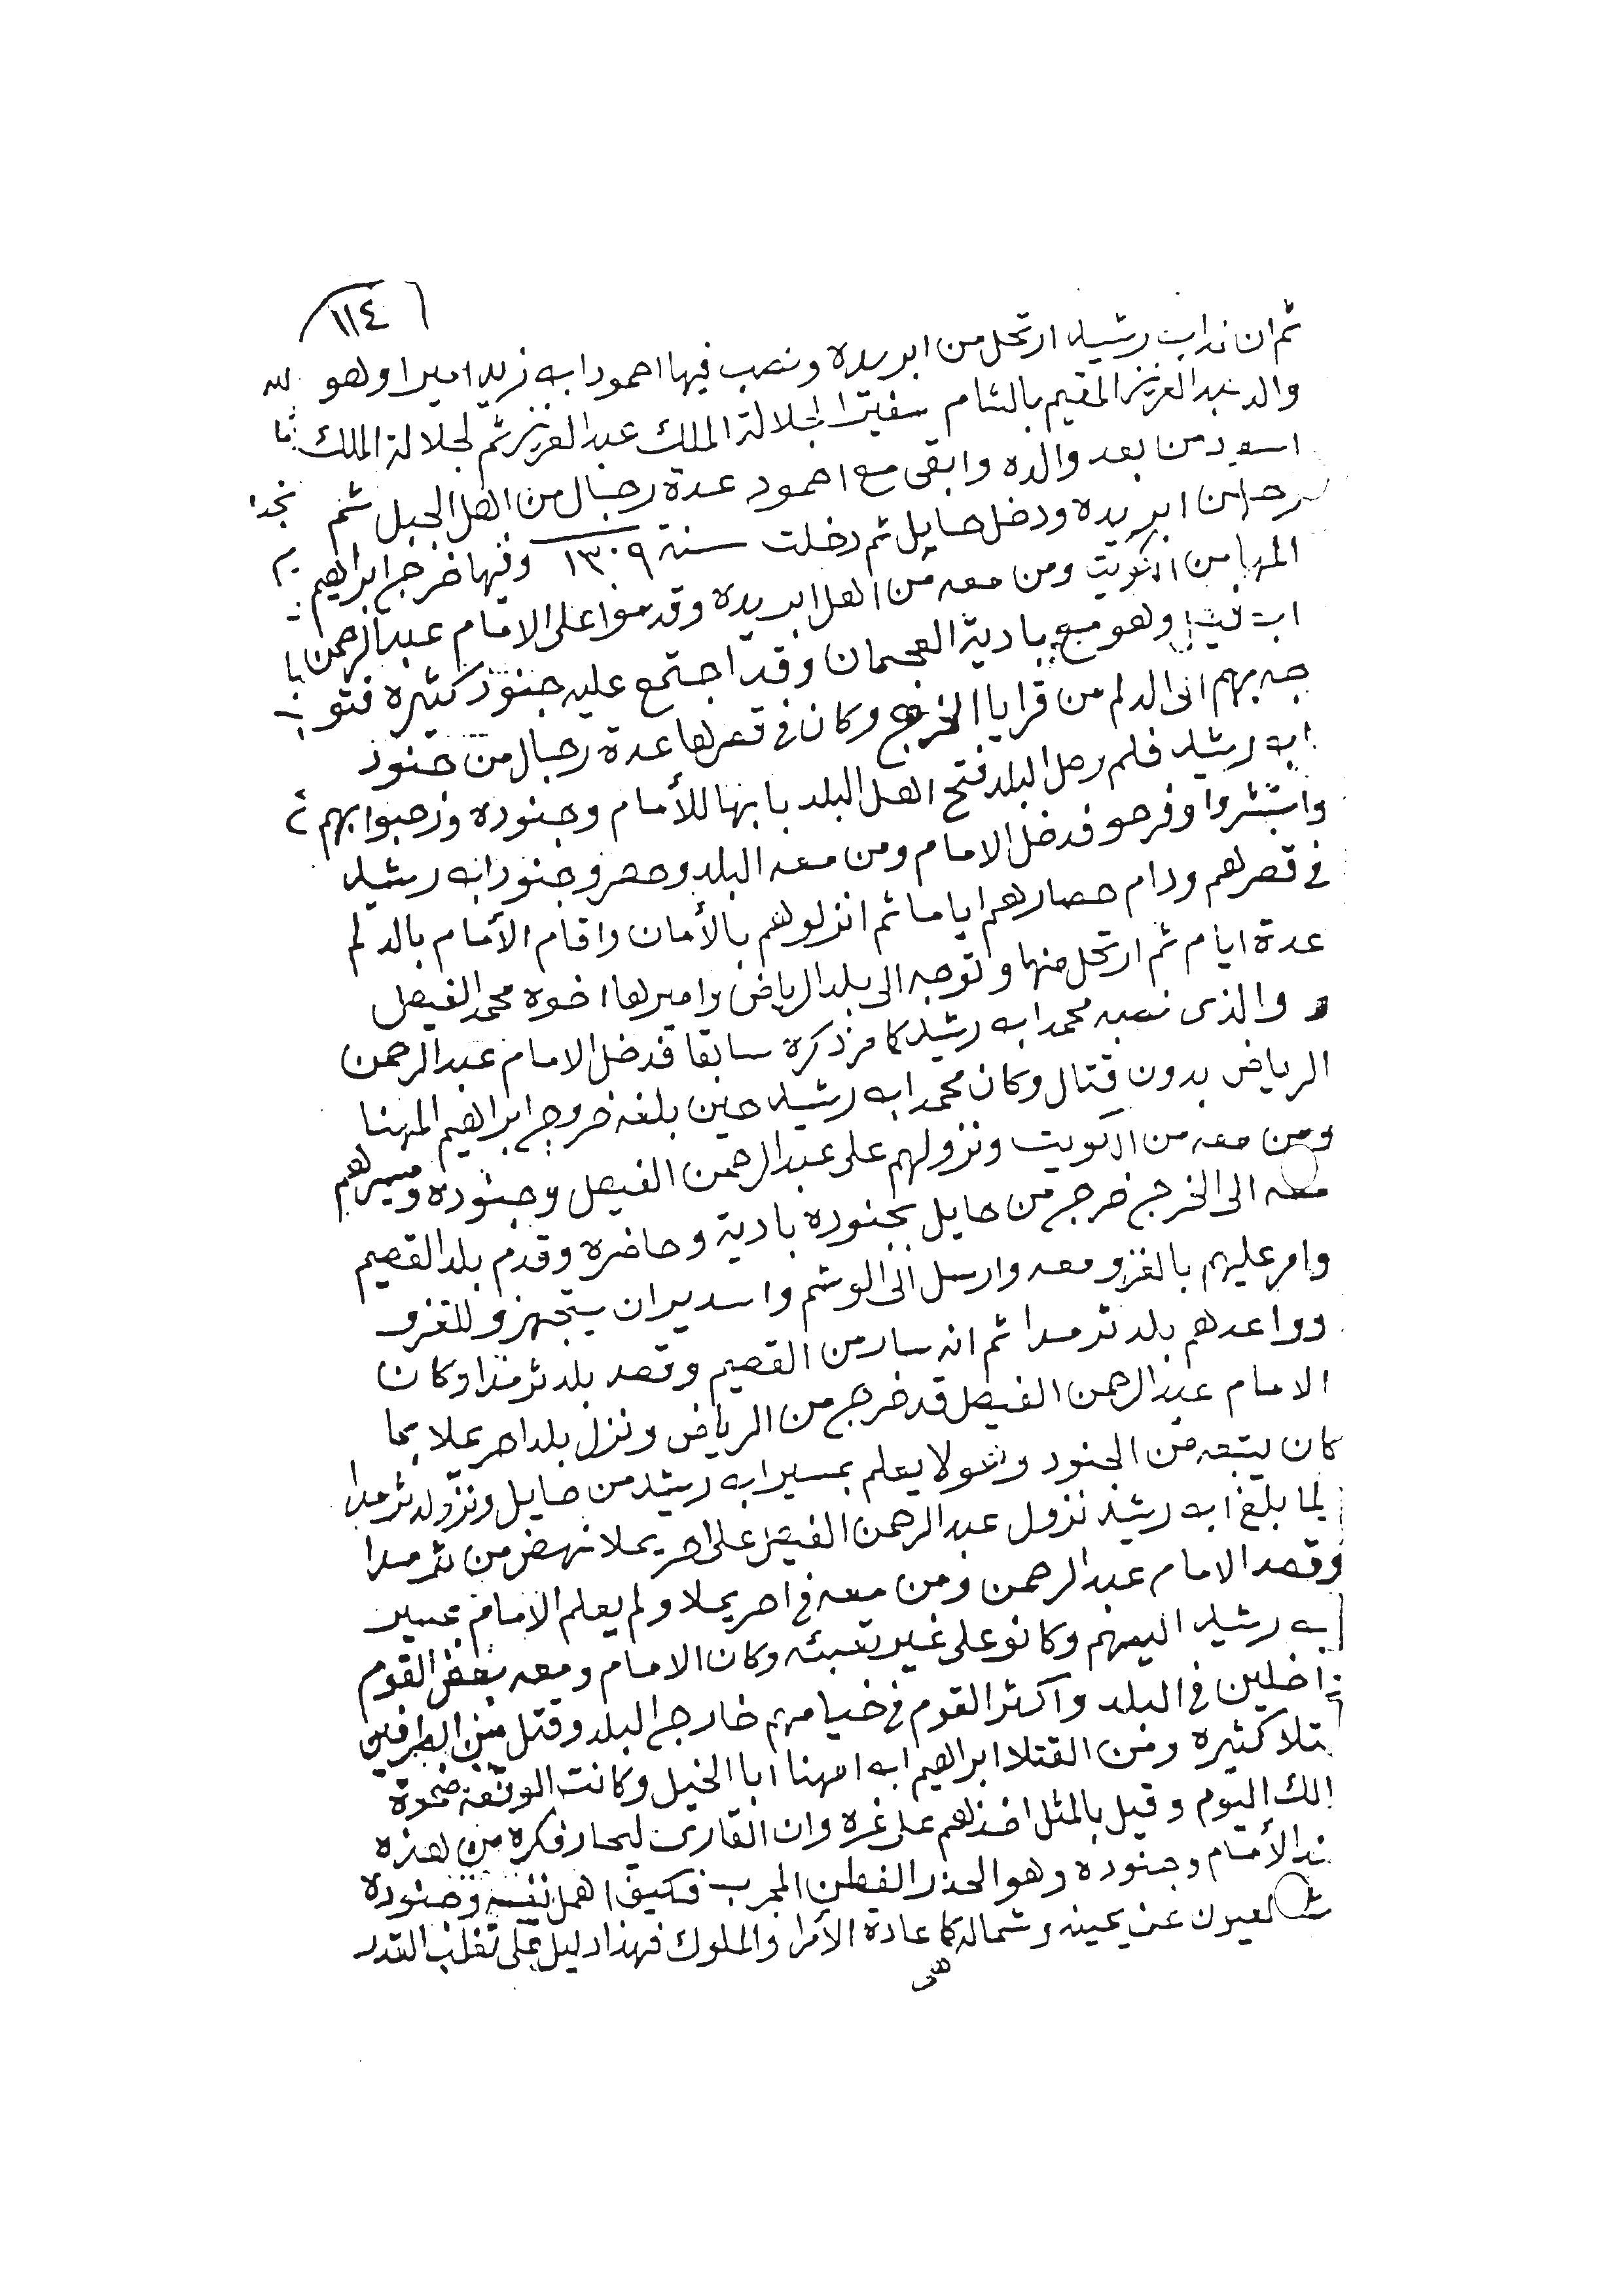 ١١٤
ثم ان ابن رشيد ارتحل من ابريده ونصب فيها احمود ابن زيد اميرا وهو
والد عبدالعزيز المقيم بالشام سفيرا لجلالة الملك عبدالعزيز ثم لجلالة الملك
اسعود من بعد والده وابقى مع احمود عدة رجال من اهل الجبل ثم
رحل من ابريده ودخل حايل ثم دخلت سنة ١٣٠٩ وفيها خرج ابراهيم
المهنا من الكويت ومن معه من اهل ابريده وقدموا على الامام عبدالرحمن
ابن فيصل وهو مع بادية العجمان وقد اجتمع عليه جنود كثيره فتو
جه بهم الى الدلم من قرايا الخرج وكان في قصرها عدة رجال من جنود
ابن رشيد فلم وصل البلد فتح اهل البلد بابها للأمام وجنوده ورحبوا بهم
واستبشروا وفرحو فدخل الامام ومن معه البلد وحصرو جنود ابن رشيد
في قصرهم ودام حصارهم اياما ثم انزلوهم بالأمان واقام الأمام بالدلم
عدة ايام ثم ارتحل منها وتوجه الى بلد الرياض واميرها اخوه محمد الفيصل
والذي نصبه محمد ابن رشيد كما مر ذكره سابقا فدخل الامام عبدالرحمن
الرياض بدون قتال وكان محمد ابن رشيد حين بلغه خروج ابراهيم المهنا
ومن معه من الكويت ونزولهم على عبدالرحمن الفيصل وجنوده ومسيرهم
معه الى الخرج خرج من حايل بجنوده بادية وحاضره وقدم بلد القصيم
وامر عليهم بالغزو معه وارسل الى الوشم واسدير ان يتجهزو للغزو
وواعدهم بلد ثرمدا ثم انه سار من القصيم وقصد بلد ثرمدا وكان
الامام عبدالرحمن الفيصل قد خرج من الرياض ونزل بلد احريملا بما
كان يتبعه من الجنود وهو لا يعلم بمسير ابن رشيد من حايل ونزوله ثرمدا
لما بلغ ابن رشيد نزول عبدالرحمن الفيصل على احريملا نهض من ثرمدا
وقصد الامام عبدالرحمن ومن معه في احريملا ولم يعلم الامام بمسير
ابن رشيد اليهم وكانو على غير تعبئه وكان الامام ومعه بعض القوم
داخلين في البلد واكثر القوم في خيامهم خارج البلد وقتل من الطرفين
قتلا كثيره ومن القتلا ابراهيم ابن امهنا ابا الخيل وكانت الوقعة ضحوة
ذلك اليوم وقيل بالمثل اخذهم على غره وان القارى ليحار فكره من هذه
عند الأمام وجنوده وهو الحذر الفطن المجرب فكيف اهمل نفسه وجنوده
العيون عن يمينه وشماله كما عادة الأمرا والملوك فهذا دليل على تغلب القدر